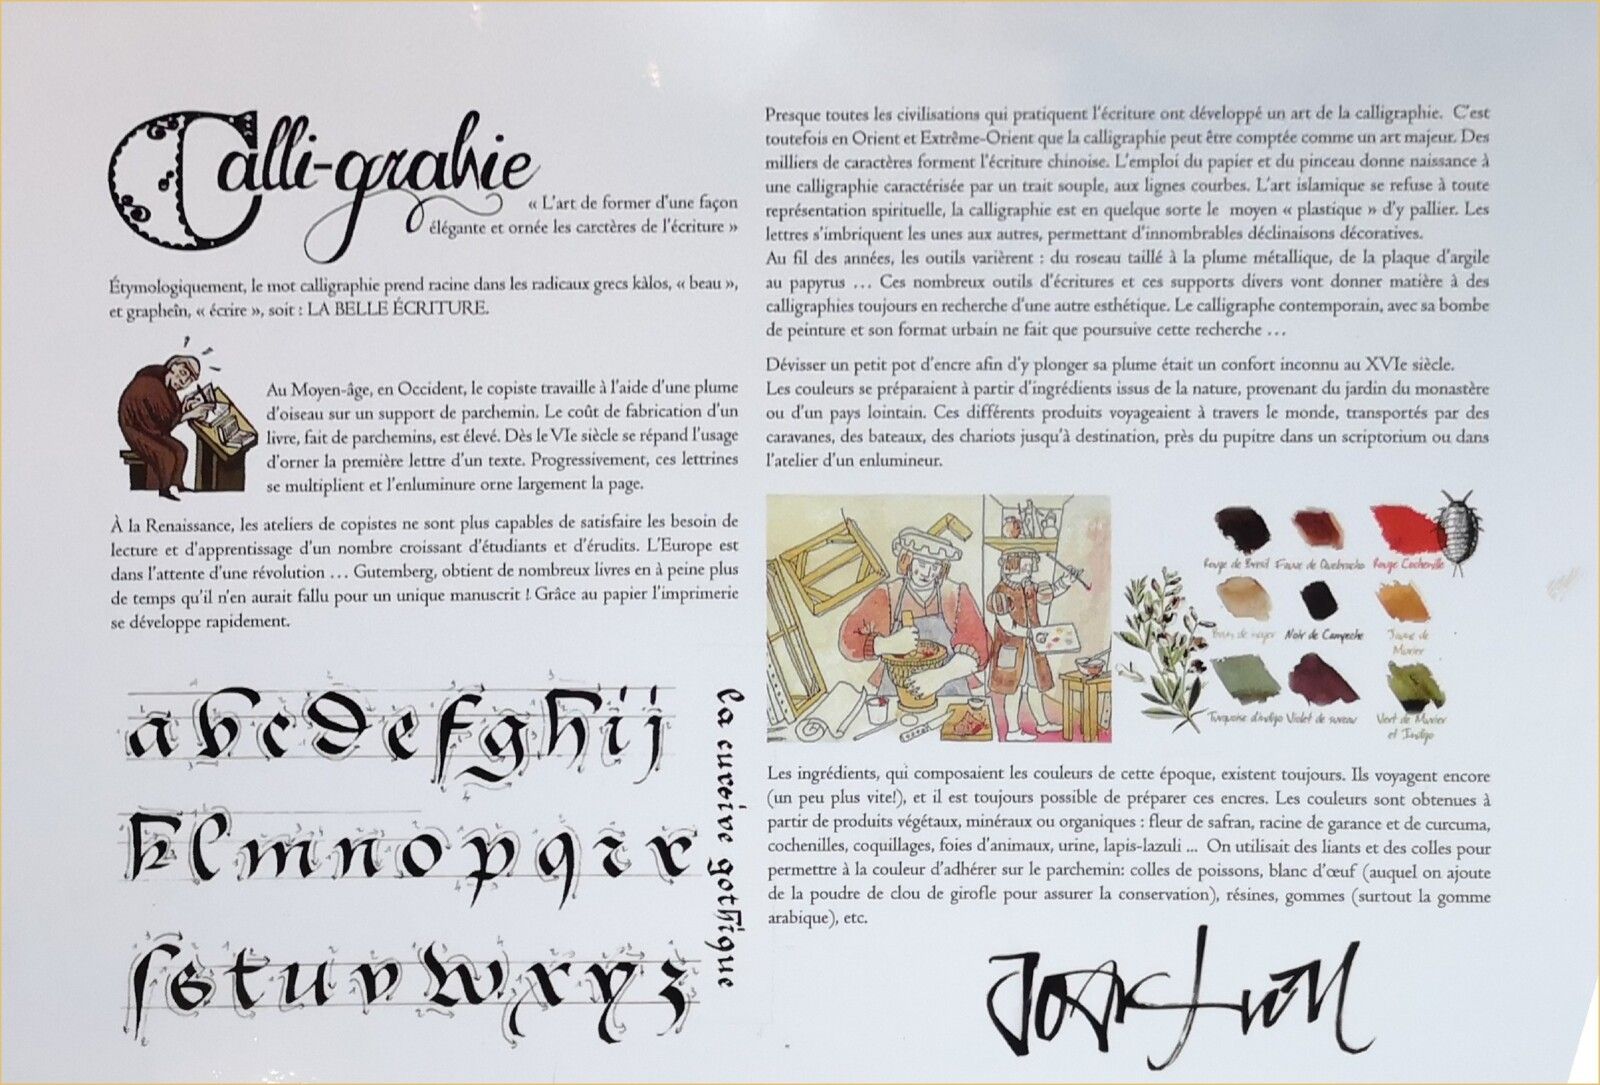 Calli-grahie
« L'art de former d'une façon
élégante et ornée les carctères de l'écriture »
Étymologiquement, le mot calligraphie prend racine dans les radicaux grecs kàlos, « beau »,
et grapheîn, « écrire », soit : LA BELLE ÉCRITURE.
Au Moyen-âge, en Occident, le copiste travaille à l'aide d'une plume
d'oiseau sur un support de parchemin. Le coût de fabrication d'un
livre, fait de parchemins, est élevé. Dès le VIe siècle se répand l'usage
d'orner la première lettre d'un texte. Progressivement, ces lettrines
se multiplient et l'enluminure orne largement la page.
À la Renaissance, les ateliers de copistes ne sont plus capables de satisfaire les besoin de
lecture et d'apprentissage d'un nombre croissant d'étudiants et d'érudits. L'Europe est
dans l'attente d'une révolution … Gutemberg, obtient de nombreux livres en à peine plus
de temps qu'il n'en aurait fallu pour un unique manuscrit ! Grâce au papier l'imprimerie
se développe rapidement.
a b c d e f g h i j
k l m n o p q r r
s s t u v w x y z
la cursive gothique
Presque toutes les civilisations qui pratiquent l'écriture ont développé un art de la calligraphie. C'est
toutefois en Orient et Extrême-Orient que la calligraphie peut être comptée comme un art majeur. Des
milliers de caractères forment l'écriture chinoise. L'emploi du papier et du pinceau donne naissance à
une calligraphie caractérisée par un trait souple, aux lignes courbes. L'art islamique se refuse à toute
représentation spirituelle, la calligraphie est en quelque sorte le moyen « plastique » d'y pallier. Les
lettres s'imbriquent les unes aux autres, permettant d'innombrables déclinaisons décoratives.
Au fil des années, les outils varièrent : du roseau taillé à la plume métallique, de la plaque d'argile
au papyrus … Ces nombreux outils d'écritures et ces supports divers vont donner matière à des
calligraphies toujours en recherche d'une autre esthétique. Le calligraphe contemporain, avec sa bombe
de peinture et son format urbain ne fait que poursuive cette recherche …
Dévisser un petit pot d'encre afin d'y plonger sa plume était un confort inconnu au XVIe siècle.
Les couleurs se préparaient à partir d'ingrédients issus de la nature, provenant du jardin du monastère
ou d'un pays lointain. Ces différents produits voyageaient à travers le monde, transportés par des
caravanes, des bateaux, des chariots jusqu'à destination, près du pupitre dans un scriptorium ou dans
l'atelier d'un enlumineur.
Rouge de Bresil Fauve de Quebracho Rouge Cochenille
Brun de noyer Noir de Campeche Jaune de
Murier
Turquoise d'indigo Violet de sureau Vert de Murier
et Indigo
Les ingrédients, qui composaient les couleurs de cette époque, existent toujours. Ils voyagent encore
(un peu plus vite!), et il est toujours possible de préparer ces encres. Les couleurs sont obtenues à
partir de produits végétaux, minéraux ou organiques : fleur de safran, racine de garance et de curcuma,
cochenilles, coquillages, foies d'animaux, urine, lapis-lazuli ... On utilisait des liants et des colles pour
permettre à la couleur d'adhérer sur le parchemin: colles de poissons, blanc d'œuf (auquel on ajoute
de la poudre de clou de girofle pour assurer la conservation), résines, gommes (surtout la gomme
arabique), etc.